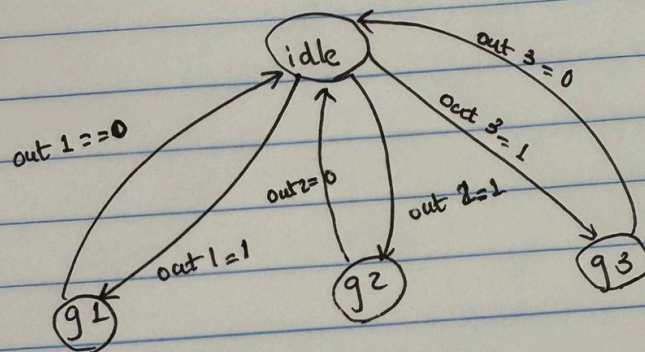 idle
out 3 = 0
out 3 = 1
out 1 = = 0
out2= 0
out 2=1
out 1 = 1
g1
g2
g3